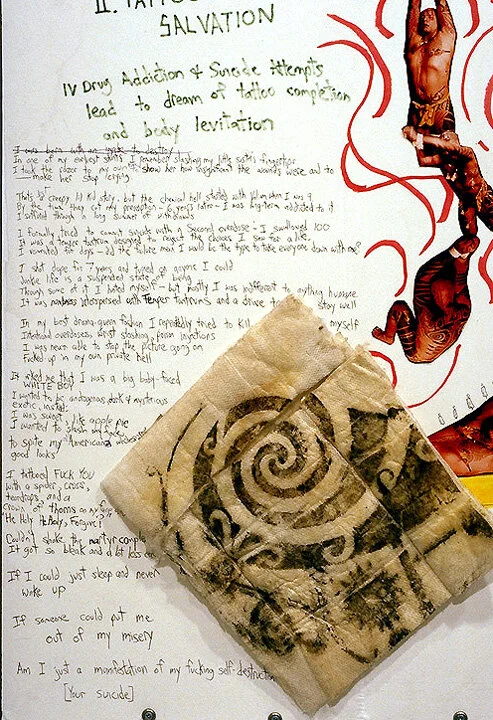 II. TATTOO
SALVATION
IV Drug Addiction & Suicide Attempts
lead to dream of tattoo completion
and body levitation
I was born with an to destroy
In one of my earliest I remember slashing my little sister's fingertips
I took the razor to my own to show her how insignificant the wounds were and to
make her stop crying
That's a creepy lil kid story - but the chemical hell started with when I was 9
By the time they cut my prescription - 6 years later - I was long-term addicted to it
I suffered through a long summer of withdrawals
I formally tried to commit suicide with a second overdose - I swallowed 100
It was a temper tantrum designed to the choices I saw for a life.
I vomited for days - did the future man I would be the type to take everyone down with me?
I shot dope for 7 years and turned on anyone I could
Junkie life - a suspended state of
Though some of it I hated myself - but mostly I was indifferent to anything humane
It was numbness interspersed with temper tantrums and a drive to stay well
In my best drama-queen fashion I repeatedly tried to kill myself
Intentional overdoses, wrist slashing, poison injections
I was never able to stop the picture going on
Fucked-up in my own private hell
It irked me that I was a big baby-faced
WHITE BOY
I wanted to be androgynous dark & mysterious
exotic,
I was sweet like apple pie
I wanted to
to spite my American
good looks
I tattooed FUCK YOU
with a spider, cross,
teardrops, and a
crown of thorns on my
"He Holy McHoly, Forgive!
Couldn't shake the martyr
It got so bleak and a bit less
If I could just sleep and never
wake up
If someone could put me
out of my misery
Am I just a manifestation of my fucking self-destruct
[Your suicide]